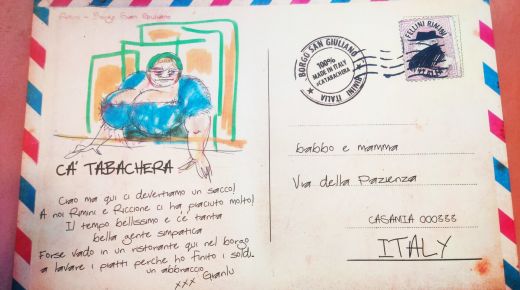 Rimini - Borgo San Giuliano
CA' TABACHERA
Ciao ma qui ci devertiamo un sacco!
A noi Rimini e Riccione ci ha piaciuto molto!
Il tempo bellissimo e c'è tanta
bella gente simpatica
Forse vado in un ristorante qui nel borgo
a lavare i piatti perche ho finito i soldi.
un abbraccio
xxx Gianlu
BORGO SAN GIULIANO
100%
MADE IN ITALY
#CATABACHERA
RIMINI ITALIA
FELLINI RIMINI
ITALIA
babbo e mamma
Via della Pazienza
CASAMIA 000888
ITALY